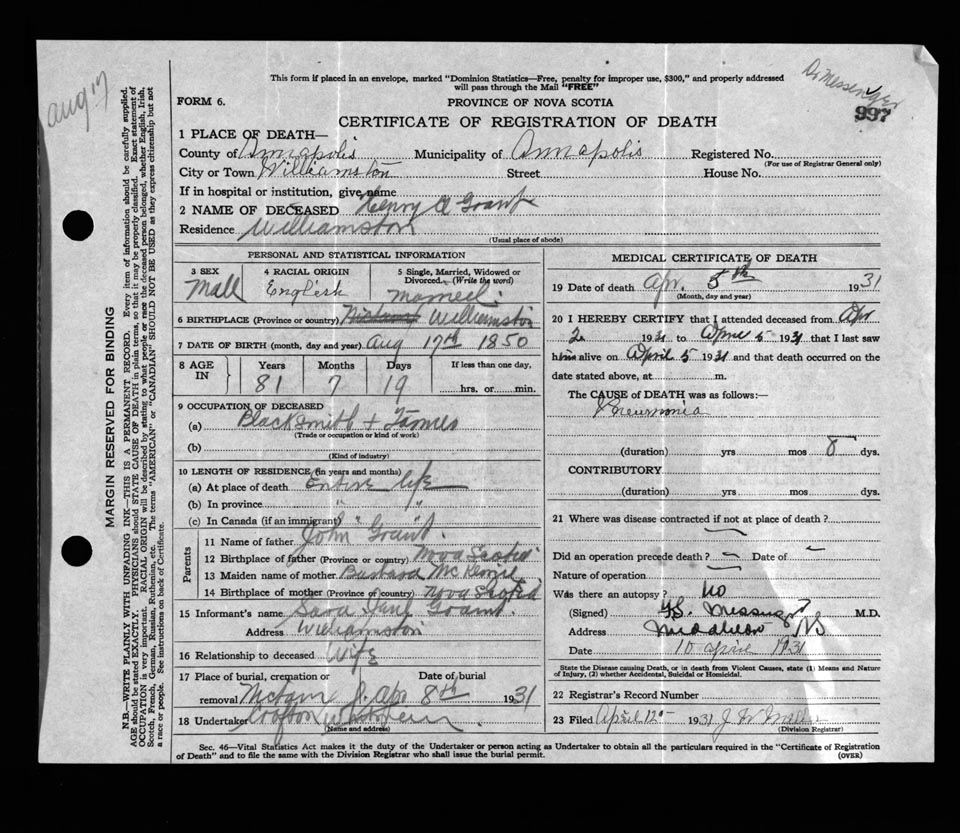 This form if placed in an envelope, marked "Dominion Statistics—Free, penalty for improper use, $300," and properly addressed
will pass through the Mail "FREE"
Dr Messenger
997
Aug 17
FORM 6.
PROVINCE OF NOVA SCOTIA
CERTIFICATE OF REGISTRATION OF DEATH
1 PLACE OF DEATH—
County of Annapolis Municipality of Annapolis Registered No.
(For use of Registrar General only)
City or Town Williamston Street House No.
If in hospital or institution, give name
2 NAME OF DECEASED Henry A Grant
Residence Williamston
(Usual place of abode)
MARGIN RESERVED FOR BINDING
N.B.—WRITE PLAINLY WITH UNFADING INK—THIS IS A PERMANENT RECORD. Every item of information should be carefully supplied.
AGE should be stated EXACTLY. PHYSICIANS should STATE CAUSE OF DEATH in plain terms, so that it may be properly classified. Exact statement of
OCCUPATION is very important. RACIAL ORIGIN will be described by stating to what people or race the deceased person belonged, whether English, Irish,
Scotch, French, German, Russian, Ruthenian, etc. The terms "AMERICAN" or "CANADIAN" SHOULD NOT BE USED as they express citizenship but not
a race or people. See instructions on back of Certificate.
PERSONAL AND STATISTICAL INFORMATION
3 SEX 4 RACIAL ORIGIN 5 Single, Married, Widowed or
Divorced. (Write the word)
Mall English
6 BIRTHPLACE (Province or country) Williamston
7 DATE OF BIRTH (month, day and year) Aug 17th 1850
8 AGE IN Years Months Days If less than one day,
81 7 19 hrs. or min.
9 OCCUPATION OF DECEASED
(a) Blacksmith +
(Trade or occupation or kind of work)
(b)
(Kind of industry)
10 LENGTH OF RESIDENCE (in years and months)
(a) At place of death Entire life
(b) In province "
(c) In Canada (if an immigrant) "
Parents
11 Name of father John Grant
12 Birthplace of father (Province or country) Nova Scotia
13 Maiden name of mother
14 Birthplace of mother (Province or country) Nova Scotia
15 Informant's name Sara Jane Grant
Address Williamston
16 Relationship to deceased Wife
17 Place of burial, cremation or Date of burial
removal Apr 8th 1931
18 Undertaker
(Name and address)
MEDICAL CERTIFICATE OF DEATH
19 Date of death Apr. 5th 1931
(Month, day and year)
20 I HEREBY CERTIFY that I attended deceased from Apr
2 1931 to April 5 1931 that I last saw
him alive on April 5 1931 and that death occurred on the
date stated above, at m.
The CAUSE of DEATH was as follows:—
Pneumonia
(duration) yrs mos 8 dys.
CONTRIBUTORY
(duration) yrs mos dys.
21 Where was disease contracted if not at place of death?
Did an operation precede death? Date of
Nature of operation
Was there an autopsy? no
(Signed) Messenger M.D.
Address NS
Date 10 april 1931
State the Disease causing Death, or in death from Violent Causes, state (1) Means and Nature
of Injury, (2) whether Accidental, Suicidal or Homicidal.
22 Registrar's Record Number
23 Filed April 12 1931
(Division Registrar)
Sec. 46—Vital Statistics Act makes it the duty of the Undertaker or person acting as Undertaker to obtain all the particulars required in the "Certificate of Registration
of Death" and to file the same with the Division Registrar who shall issue the burial permit.
(OVER)